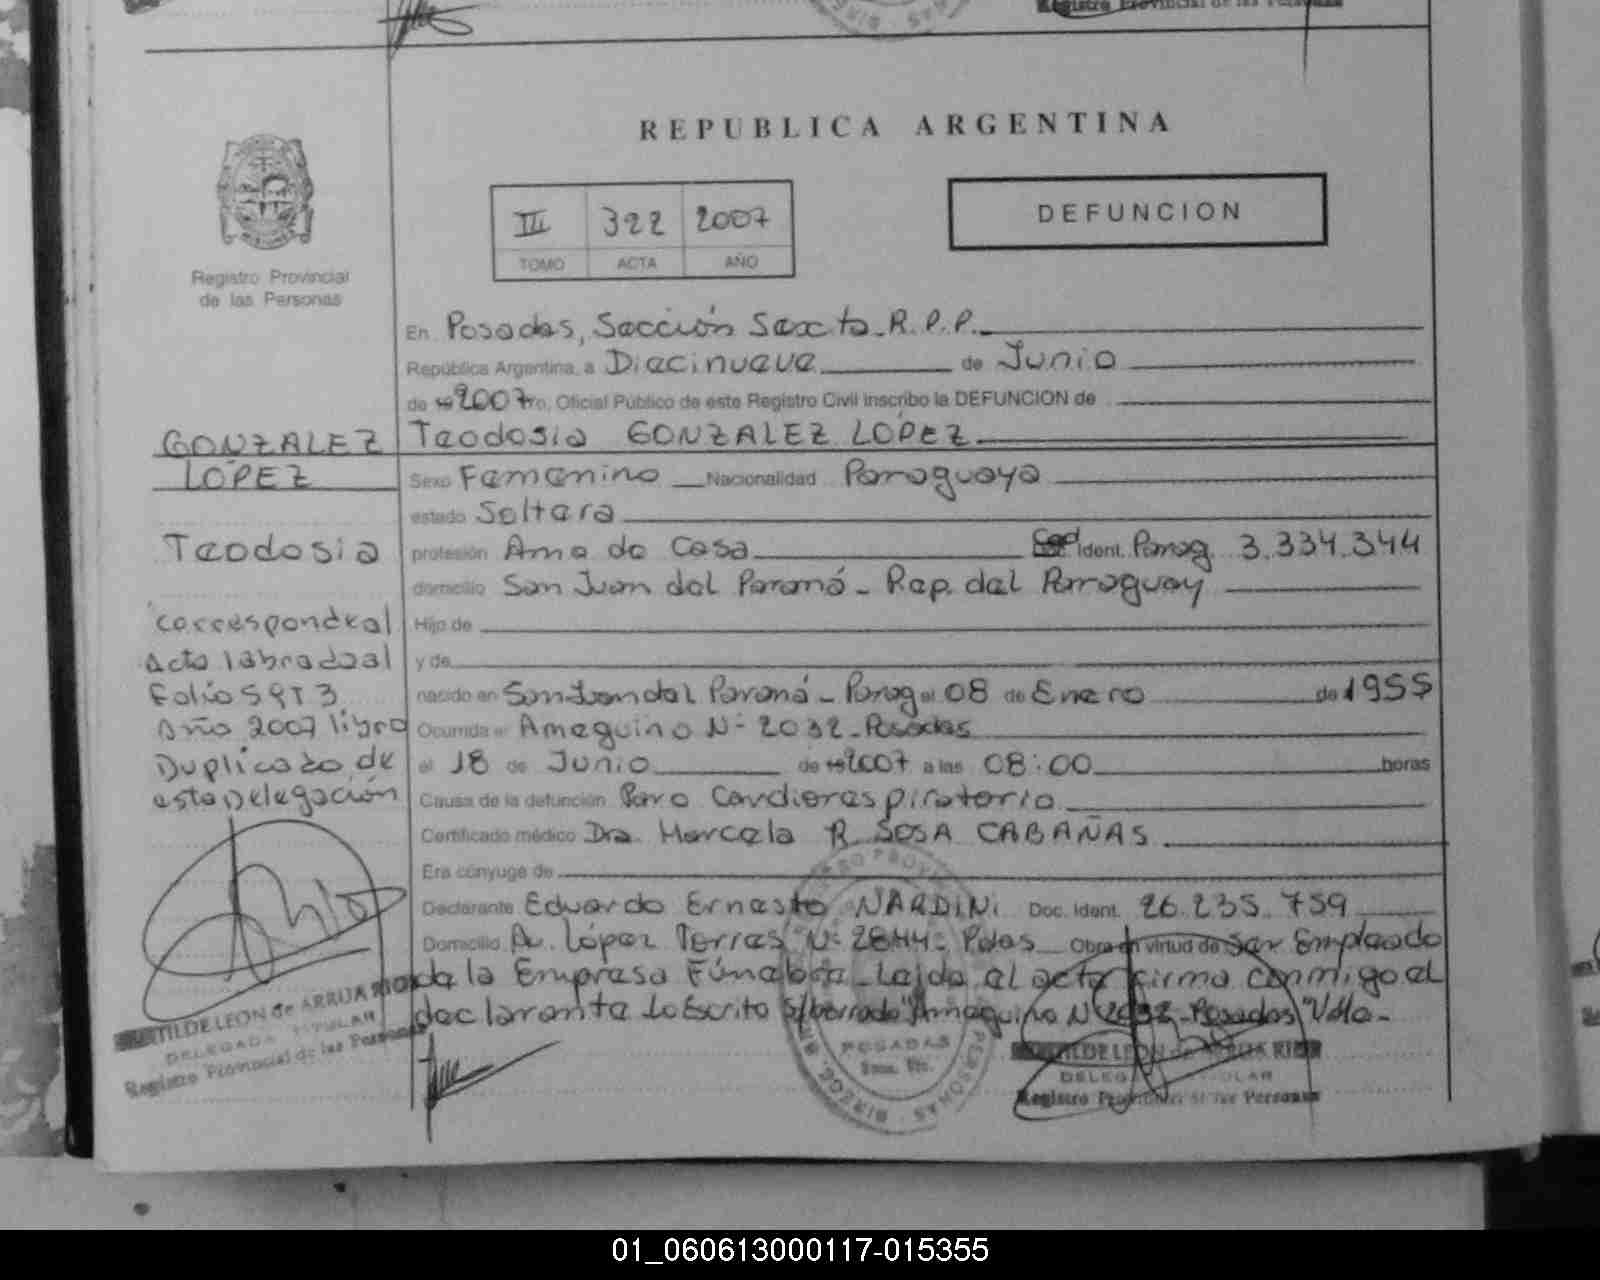 REPUBLICA ARGENTINA
III 322 2007
TOMO ACTA AÑO
DEFUNCION
Registro Provincial
de las Personas
En Posadas, Sección Sexta R.P.P.
República Argentina, a Diecinueve de Junio
de 19 2007 Yo, Oficial Público de este Registro Civil inscribo la DEFUNCION de
Teodosia GONZALEZ LÓPEZ
GONZALEZ
LÓPEZ
Teodosia
Sexo Femenino Nacionalidad Paraguaya
estado Soltera
profesión Ama de Casa Ced Ident. Parag. 3.334.344
domicilio San Juan del Paraná - Rep. del Paraguay
Hijo de
y de
nacido en San Juan del Paraná - Parag el 08 de Enero de 1955
Ocurrida en Ameguino N- 2032 - Posadas
el 18 de Junio de 19 2007 a las 08:00 horas
Causa de la defunción Paro Cardiorespiratorio
Certificado médico Dra. Marcela R. SOSA CABAÑAS
Era cónyuge de
Declarante Eduardo Ernesto NARDINI Doc. Ident. 26.235.759
Domicilio Av. López Torres N- 2844- Pdas Obra en virtud de Ser Empleado
de la Empresa Fúnebre - Leída el acta firma conmigo el
declarante Lo Escrito s/borrado "Ameguino N 2032 - Posadas" Vale-
Corresponde al
Acta labrada al
Folio 5 9T 3
Año 2007 libro
Duplicado de
esta Delegación
MATILDE LEON de ARRUA RIOS
DELEGADA TITULAR
Registro Provincial de las Personas
POSADAS
MATILDE LEON de ARRUA RIOS
DELEGADA TITULAR
Registro Provincial de las Personas
01_060613000117-015355